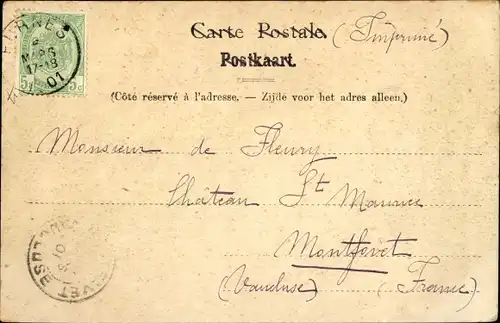 Carte Postale. (Imprimé)
Postkaart.
(Côté réservé à l'adresse. — Zijde voor het adres alleen.)
5
MARS
17-18
01
5c 5c
Monsieur de Fleury
Château St Maurice
Montfavet
(Vaucluse) (France)